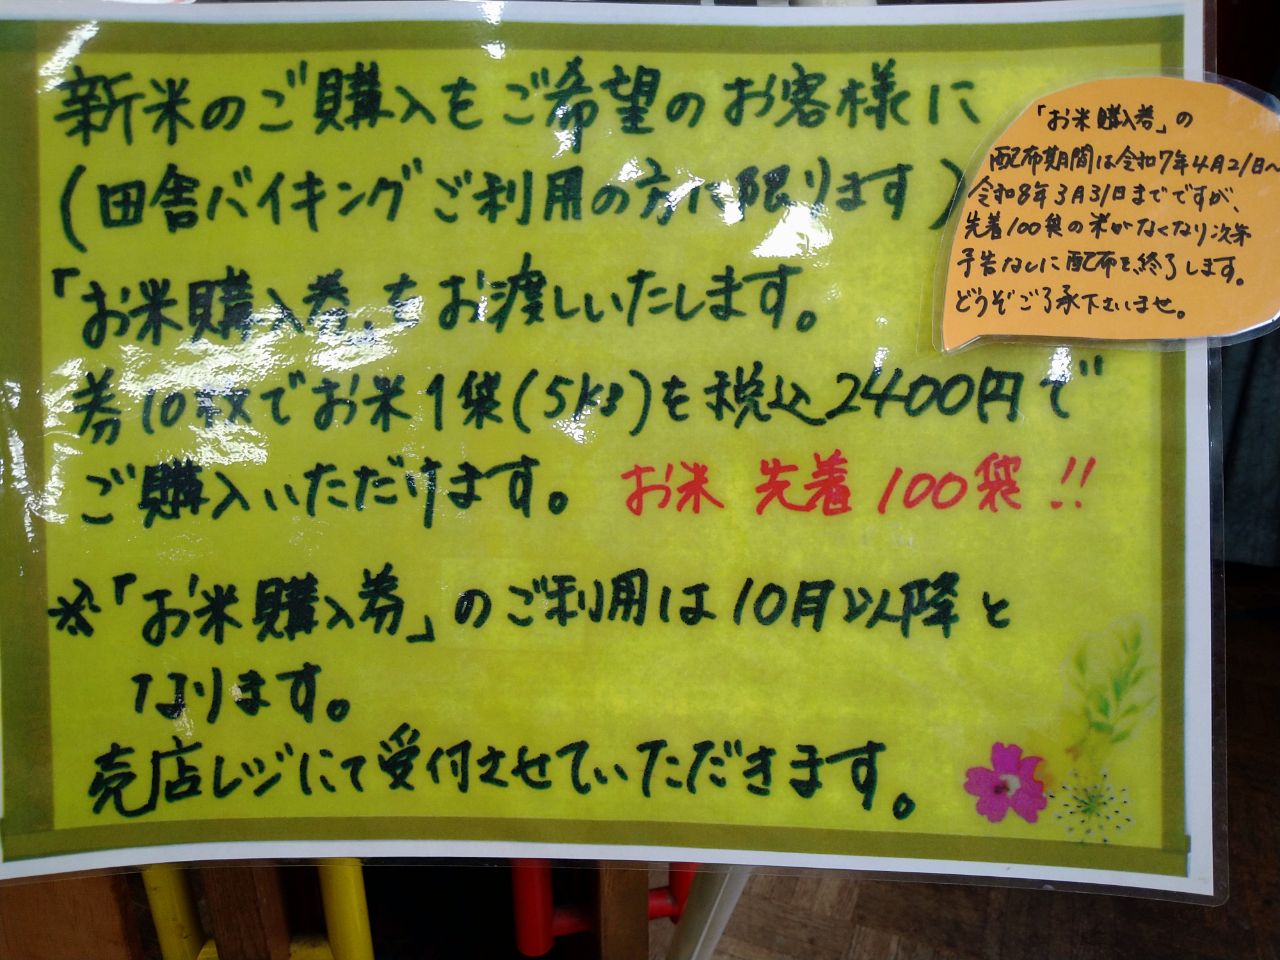 新米のご購入をご希望のお客様に
(田舎バイキングご利用の方に限ります)
「お米購入券」をお渡しいたします。
券10枚でお米1袋(5kg)を税込2400円で
ご購入いただけます。 お米 先着100袋!!
※「お米購入券」のご利用は10月以降と
なります。
売店レジにて受付させていただきます。
「お米購入券」の
配布期間は令和7年4月21日〜
令和8年3月31日までですが、
先着100袋の米がなくなり次第
予告なしに配布を終了します。
どうぞご了承下さいませ。